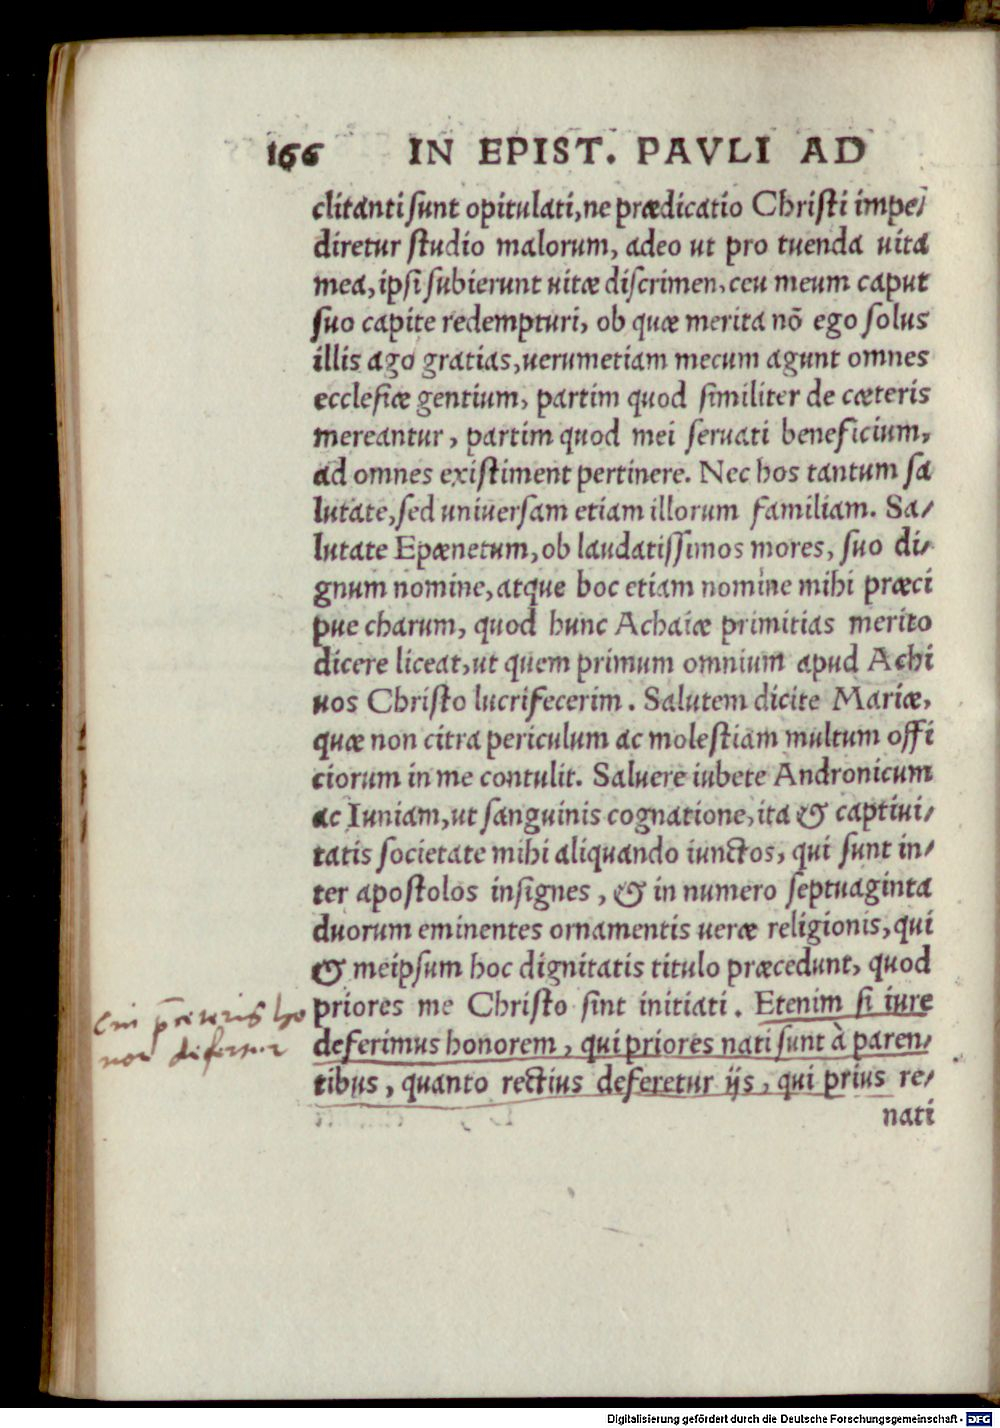 166 IN EPIST. PAVLI AD
clitanti sunt opitulati, ne prædicatio Christi impe/
diretur studio malorum, adeo ut pro tuenda uita
mea, ipsi subierunt uitæ discrimen, ceu meum caput
suo capite redempturi, ob quæ merita nõ ego solus
illis ago gratias, uerumetiam mecum agunt omnes
ecclesiæ gentium, partim quod similiter de cæteris
mereantur, partim quod mei seruati beneficium,
ad omnes existiment pertinere. Nec hos tantum sa
lutate, sed uniuersam etiam illorum familiam. Sa/
lutate Epænetum, ob laudatissimos mores, suo di/
gnum nomine, atque hoc etiam nomine mihi præci
pue charum, quod hunc Achaiæ primitias merito
dicere liceat, ut quem primum omnium apud Achi
uos Christo lucrifecerim. Salutem dicite Mariæ,
quæ non citra periculum ac molestiam multum offi
ciorum in me contulit. Saluere iubete Andronicum
ac Iuniam, ut sanguinis cognatione, ita & captiui/
tatis societate mihi aliquando iunctos, qui sunt in/
ter apostolos insignes, & in numero septuaginta
duorum eminentes ornamentis ueræ religionis, qui
& meipsum hoc dignitatis titulo præcedunt, quod
priores me Christo sint initiati. Etenim si iure
deferimus honorem, qui priores nati sunt à paren/
tibus, quanto rectius deferetur ijs, qui prius re/
nati
Cui p̄ ceteris ho
nor defertur
Digitalisierung gefördert durch die Deutsche Forschungsgemeinschaft - DFG